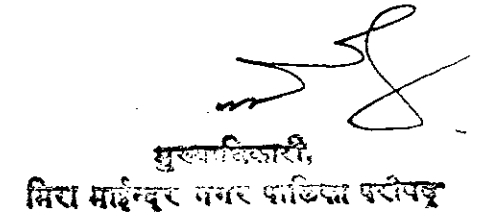 मुख्याधिकारी,
मिरा भाईन्दर नगर पालिका परीषद